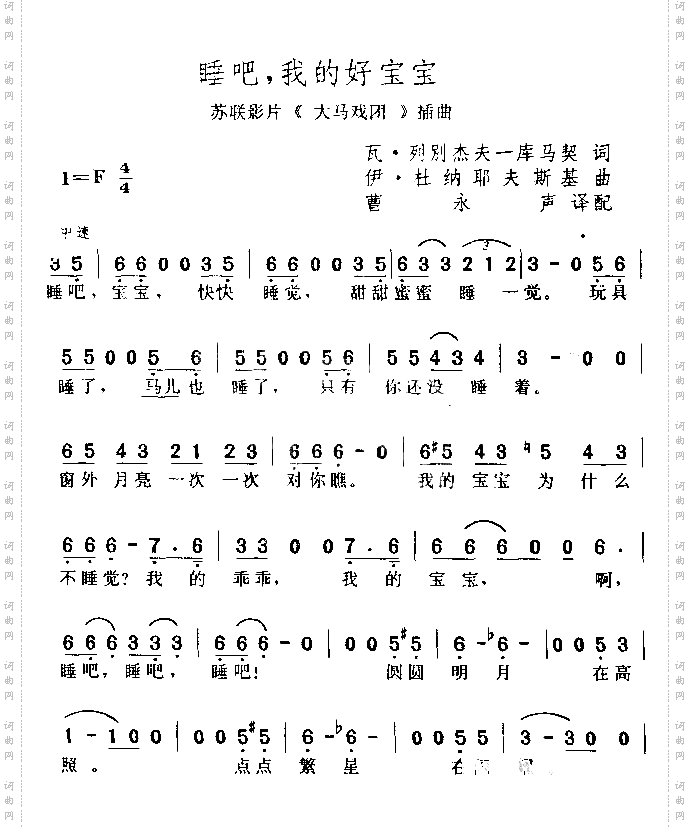 睡吧,我的好宝宝
苏联影片《 大马戏团 》插曲
1=F 4/4
瓦·列别杰夫—库马契 词
伊·杜纳耶夫斯基 曲
曹永声 译配
中速
3 5 | 6 6 0 0 3 5 | 6 6 0 0 3 5 | 6 3 3 2 1 2 | 3 - 0 5 6 |
睡吧,宝宝, 快快 睡觉, 甜甜蜜蜜 睡 一觉。 玩具
5 5 0 0 5 6 | 5 5 0 0 5 6 | 5 5 4 3 4 | 3 - 0 0 |
睡了, 马儿也 睡了, 只有 你还没 睡 着。
6 5 4 3 2 1 2 3 | 6 6 6 - 0 | 6 #5 4 3 ♮5 4 3 |
窗外 月亮 一次 一次 对你瞧。 我的 宝宝 为 什么
6 6 6 - 7 . 6 | 3 3 0 0 7 . 6 | 6 6 6 0 0 6 |
不睡觉? 我 的 乖乖, 我 的 宝 宝, 啊,
6 6 6 3 3 3 | 6 6 6 - 0 | 0 0 5 #5 | 6 - ♭6 - | 0 0 5 3 |
睡吧,睡吧, 睡吧! 圆圆 明 月 在高
1 - 1 0 0 | 0 0 5 #5 | 6 - ♭6 - | 0 0 5 5 | 3 - 3 0 0 |
照。 点点 繁 星 在
词曲网